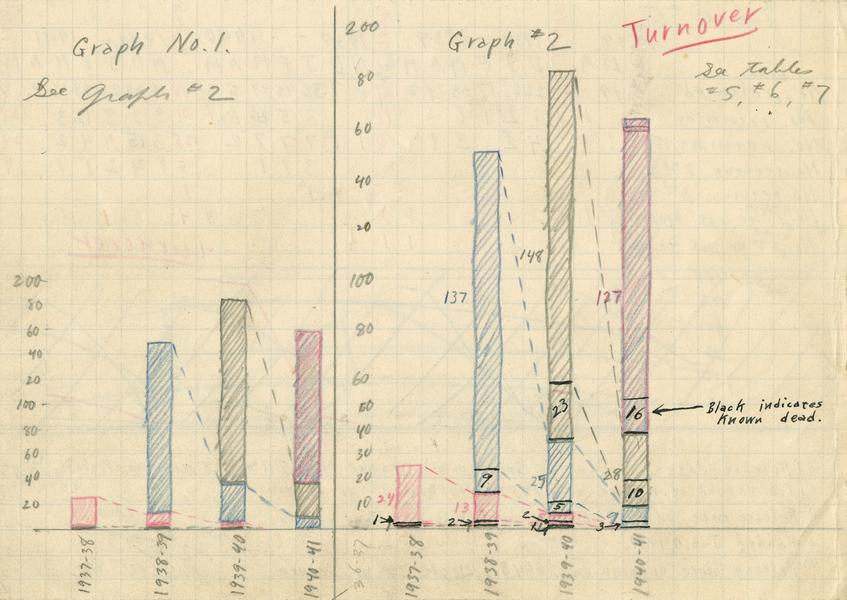 Graph No. 1.
See graph #2
200
80
60
40
20
100
80
60
40
20
1937-38
1938-39
1939-40
1940-41
Graph #2
Turnover
See tables
#5, #6, #7
200
80
60
40
20
100
80
60
50
40
30
20
10
137
148
127
23
16
Black indicates
Known dead.
9
25
28
10
24
13
5
9
1
2
2
1
3
36-37
1937-38
1938-39
1939-40
1940-41